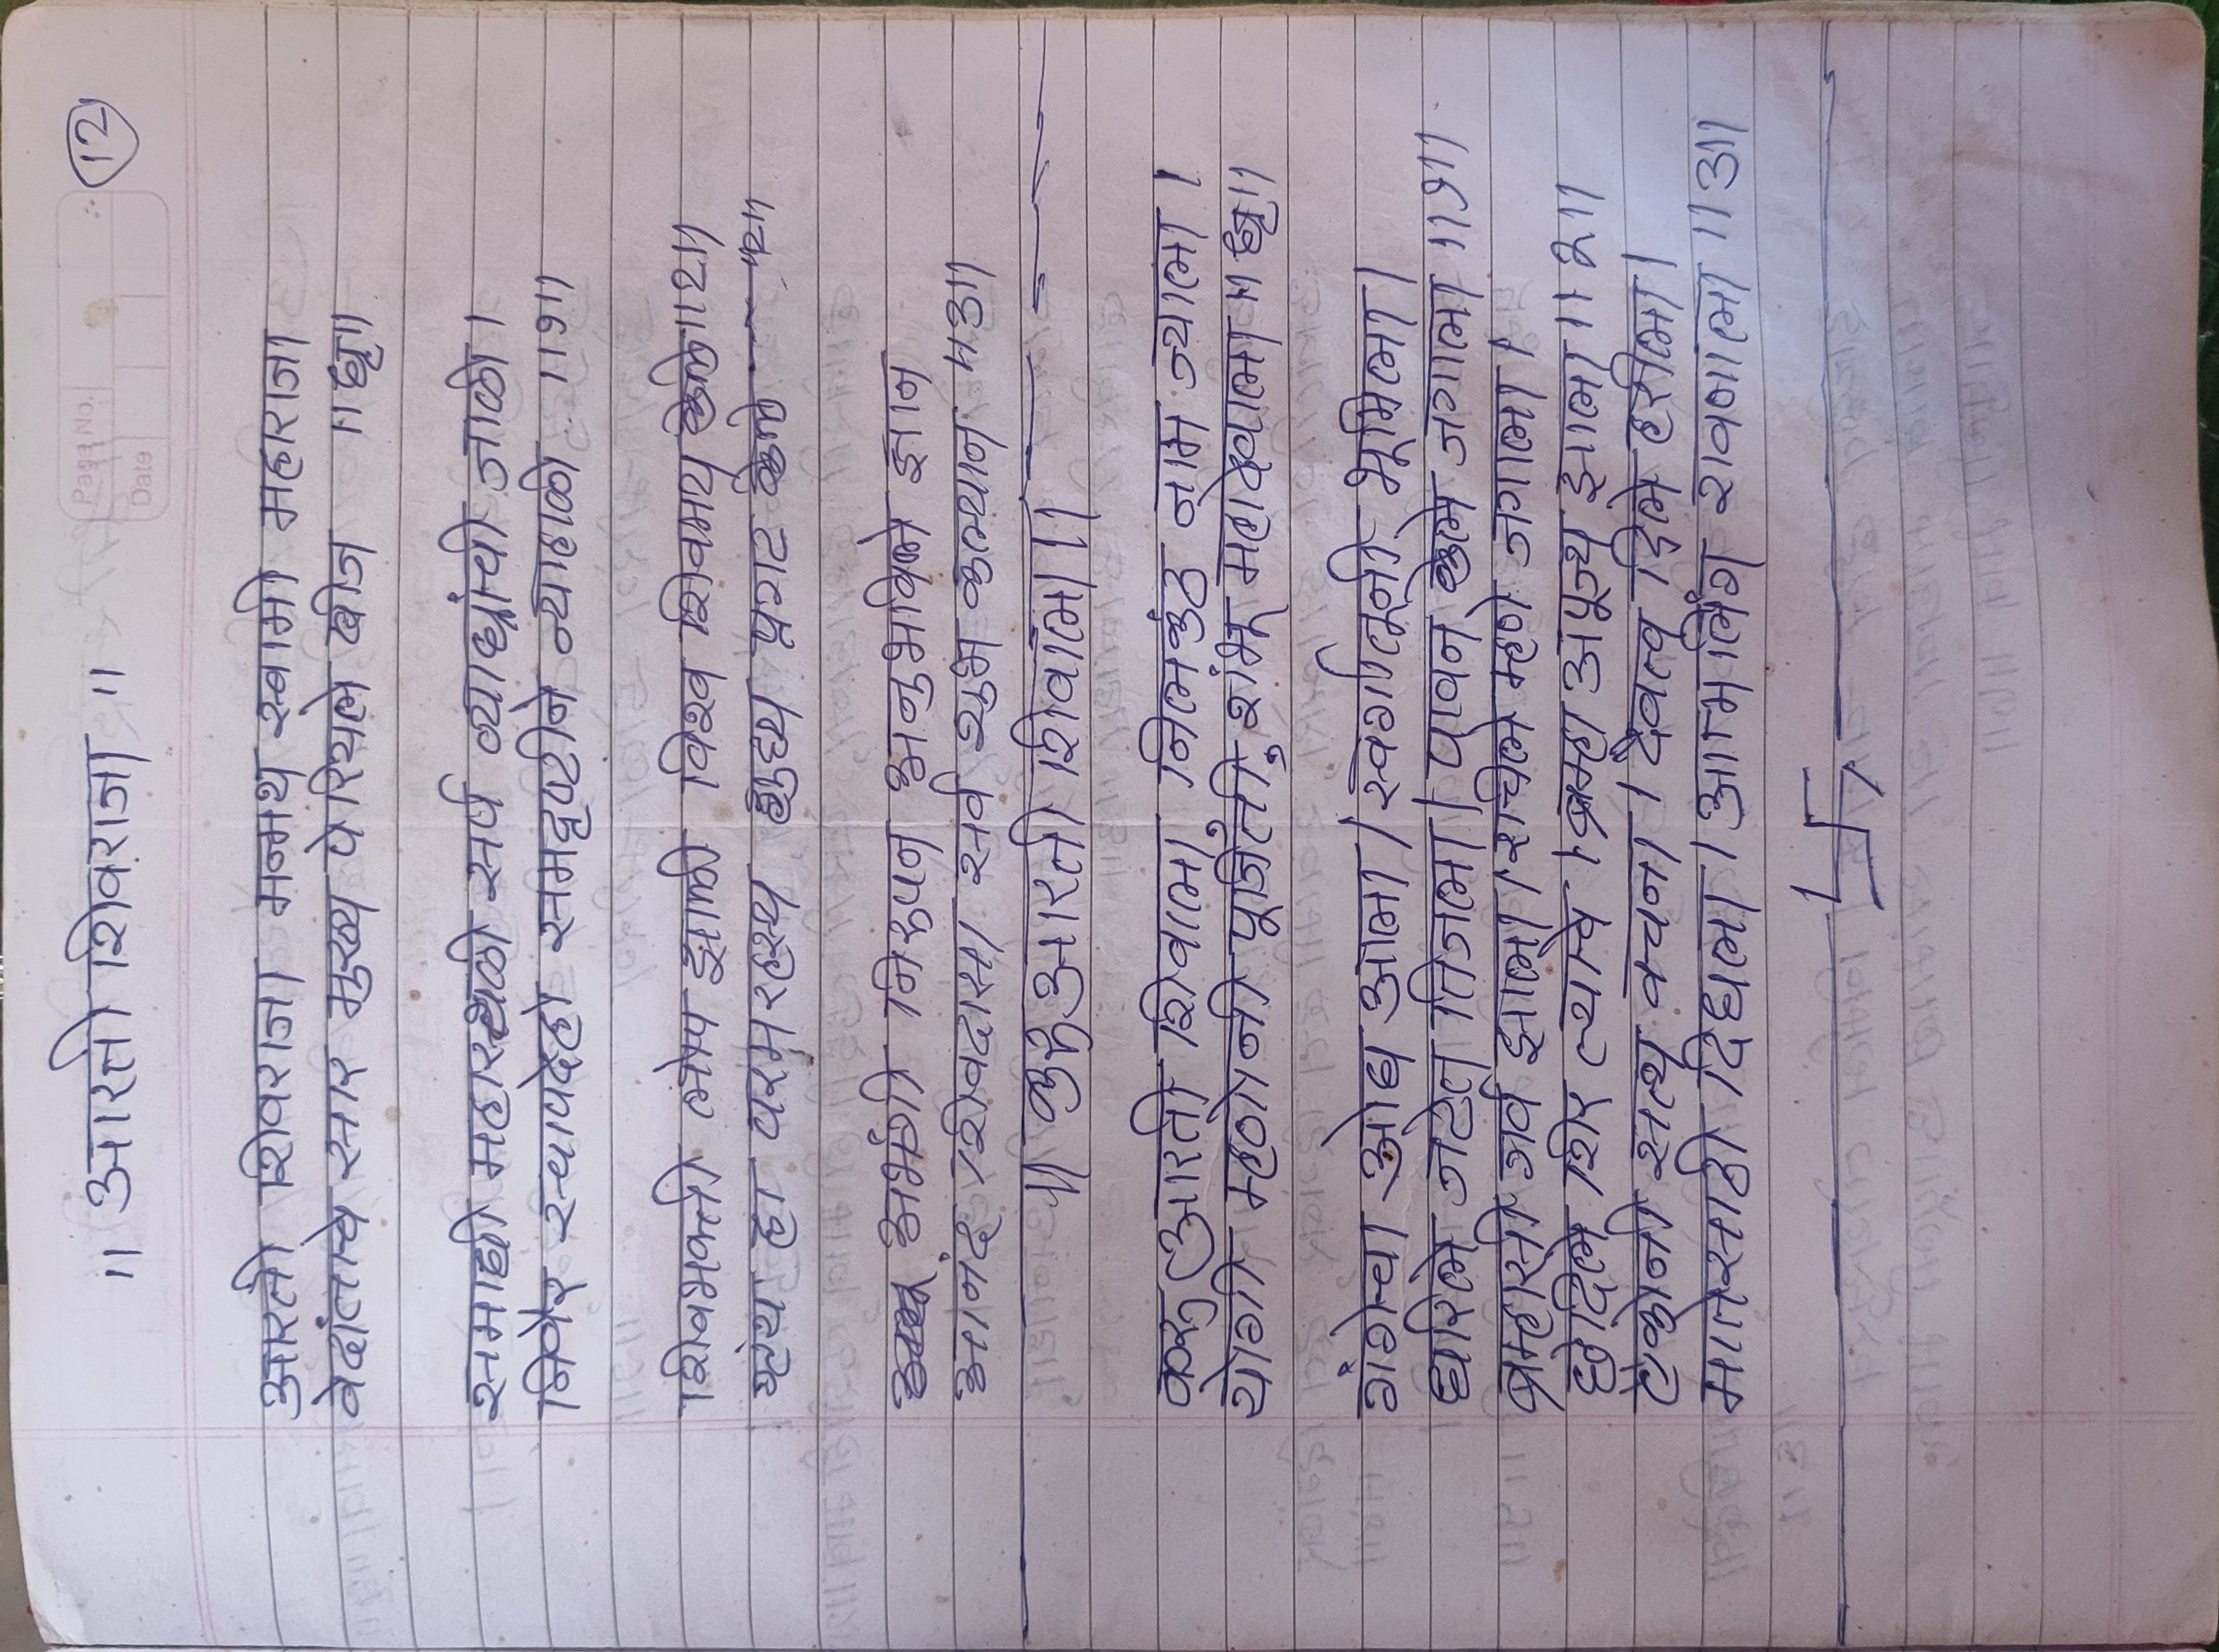 Page No.
Date
12
॥ आरती शिवराजा ॥
आरती शिवराजा मन्मथ स्वामी महाराजा
वेदांताचे सार मुख्य पेरियले बीज ॥धृ॥
समाधी महास्थळी सर्प व्याघ्रांची जाळी ।
निर्वैर स्वापदेही समदृष्टीने न्याहाळी ॥१॥
शिवभक्ती लोप झाली विश्व शिवमय केले॥2॥
ग्रंथ हा परमरहस्य शुध्द प्रगट केले ॥2॥
अभंगी निरुपन अनुभविले ज्ञान
आनंद शिवदासा सर्व शुभ कल्यान ॥3॥
॥ करु आरती शिवाला ॥
करु आरती शिवाला, निलकंठ नाम ज्याला ।
योगी म्हणोनी पूजिती, शंभू महादेवाला ॥धृ॥
गंगेचा ओघ आला । स्वर्गातूनी भूमिला ।
धरिले जटेत तिजला । पावन केले जगाला ॥१॥
ब्रम्हासी गर्व झाला । रचिले म्हणे जगाला ।
छेदिले शिर त्याचे । ब्रम्हा अपूज्य झाला ॥२॥
ऐकोनी सत्य वचना । दैवत्व दिले हरीला ।
मातेसाठी दिधला । आत्मलिंग रावणाला ॥3॥
卐